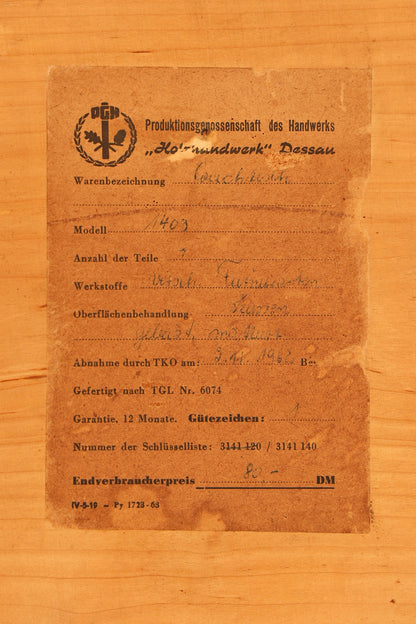 PGH
Produktionsgenossenschaft des Handwerks
„Holzhandwerk" Dessau
Warenbezeichnung Couchtisch
Modell 1403
Anzahl der Teile 1
Werkstoffe versch.
Oberflächenbehandlung
gebeizt, mattiert
Abnahme durch TKO am:
Gefertigt nach TGL Nr. 6074
Garantie, 12 Monate. Gütezeichen: 1
Nummer der Schlüsselliste: 3141 120 / 3141 140
Endverbraucherpreis 80,- DM
IV-5-19 – Py 1723-63